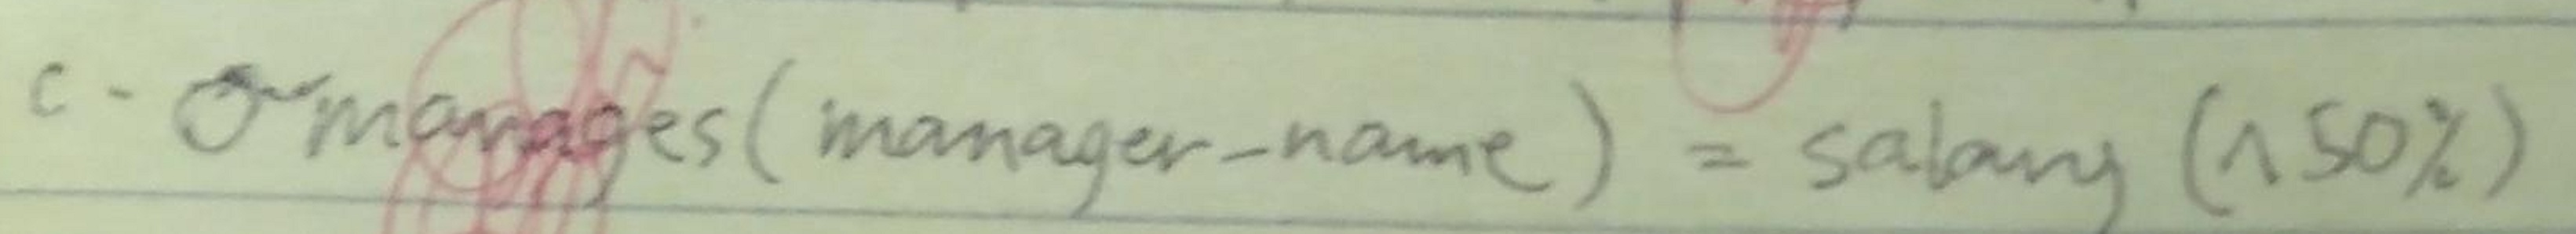 c - σ manages (manager-name) = salary (∧ 50%)